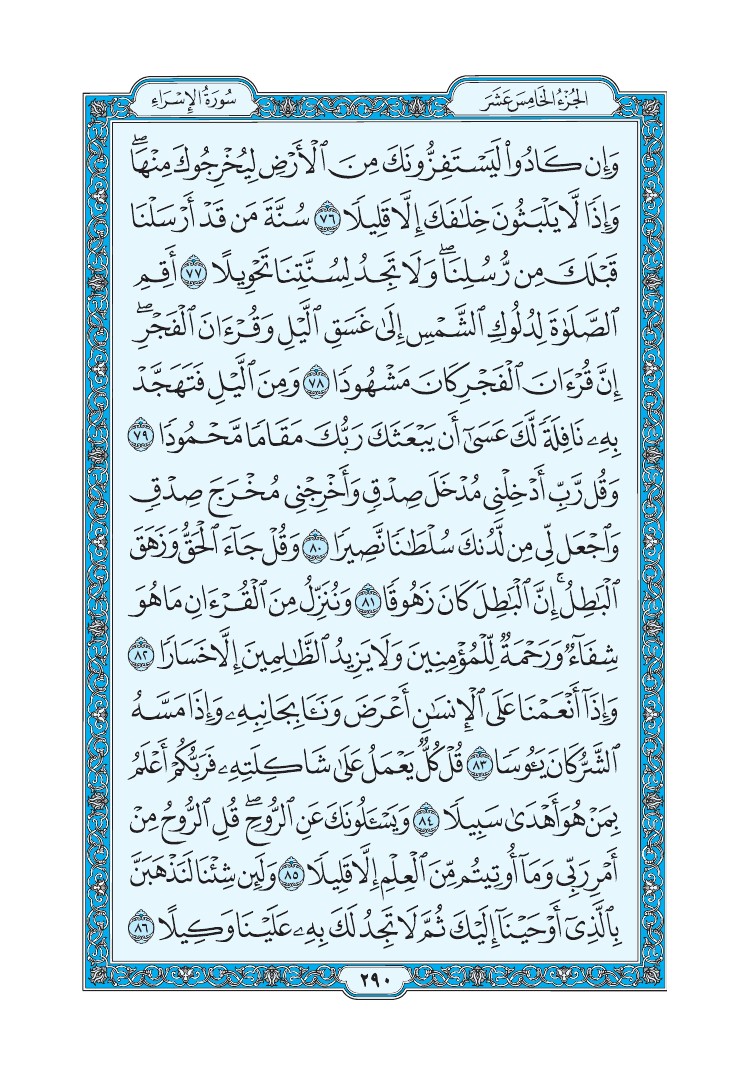 سُورَةُ الإِسْرَاءِ
الجُزْءُ الخَامِسَ عَشَرَ
وَإِن كَادُوا۟ لَيَسْتَفِزُّونَكَ مِنَ ٱلْأَرْضِ لِيُخْرِجُوكَ مِنْهَا ۖ
وَإِذًا لَّا يَلْبَثُونَ خِلَـٰفَكَ إِلَّا قَلِيلًا ٧٦ سُنَّةَ مَن قَدْ أَرْسَلْنَا
قَبْلَكَ مِن رُّسُلِنَا ۖ وَلَا تَجِدُ لِسُنَّتِنَا تَحْوِيلًا ٧٧ أَقِمِ
ٱلصَّلَوٰةَ لِدُلُوكِ ٱلشَّمْسِ إِلَىٰ غَسَقِ ٱلَّيْلِ وَقُرْءَانَ ٱلْفَجْرِ ۖ
إِنَّ قُرْءَانَ ٱلْفَجْرِ كَانَ مَشْهُودًا ٧٨ وَمِنَ ٱلَّيْلِ فَتَهَجَّدْ
بِهِۦ نَافِلَةً لَّكَ عَسَىٰٓ أَن يَبْعَثَكَ رَبُّكَ مَقَامًا مَّحْمُودًا ٧٩
وَقُل رَّبِّ أَدْخِلْنِى مُدْخَلَ صِدْقٍ وَأَخْرِجْنِى مُخْرَجَ صِدْقٍ
وَٱجْعَل لِّى مِن لَّدُنكَ سُلْطَـٰنًا نَّصِيرًا ٨٠ وَقُلْ جَآءَ ٱلْحَقُّ وَزَهَقَ
ٱلْبَـٰطِلُ ۚ إِنَّ ٱلْبَـٰطِلَ كَانَ زَهُوقًا ٨١ وَنُنَزِّلُ مِنَ ٱلْقُرْءَانِ مَا هُوَ
شِفَآءٌ وَرَحْمَةٌ لِّلْمُؤْمِنِينَ وَلَا يَزِيدُ ٱلظَّـٰلِمِينَ إِلَّا خَسَارًا ٨٢
وَإِذَآ أَنْعَمْنَا عَلَى ٱلْإِنسَـٰنِ أَعْرَضَ وَنَـَٔا بِجَانِبِهِۦ وَإِذَا مَسَّهُ
ٱلشَّرُّ كَانَ يَـُٔوسًا ٨٣ قُلْ كُلٌّ يَعْمَلُ عَلَىٰ شَاكِلَتِهِۦ فَرَبُّكُمْ أَعْلَمُ
بِمَنْ هُوَ أَهْدَىٰ سَبِيلًا ٨٤ وَيَسْـَٔلُونَكَ عَنِ ٱلرُّوحِ ۖ قُلِ ٱلرُّوحُ مِنْ
أَمْرِ رَبِّى وَمَآ أُوتِيتُم مِّنَ ٱلْعِلْمِ إِلَّا قَلِيلًا ٨٥ وَلَئِن شِئْنَا لَنَذْهَبَنَّ
بِٱلَّذِىٓ أَوْحَيْنَآ إِلَيْكَ ثُمَّ لَا تَجِدُ لَكَ بِهِۦ عَلَيْنَا وَكِيلًا ٨٦
٢٩٠